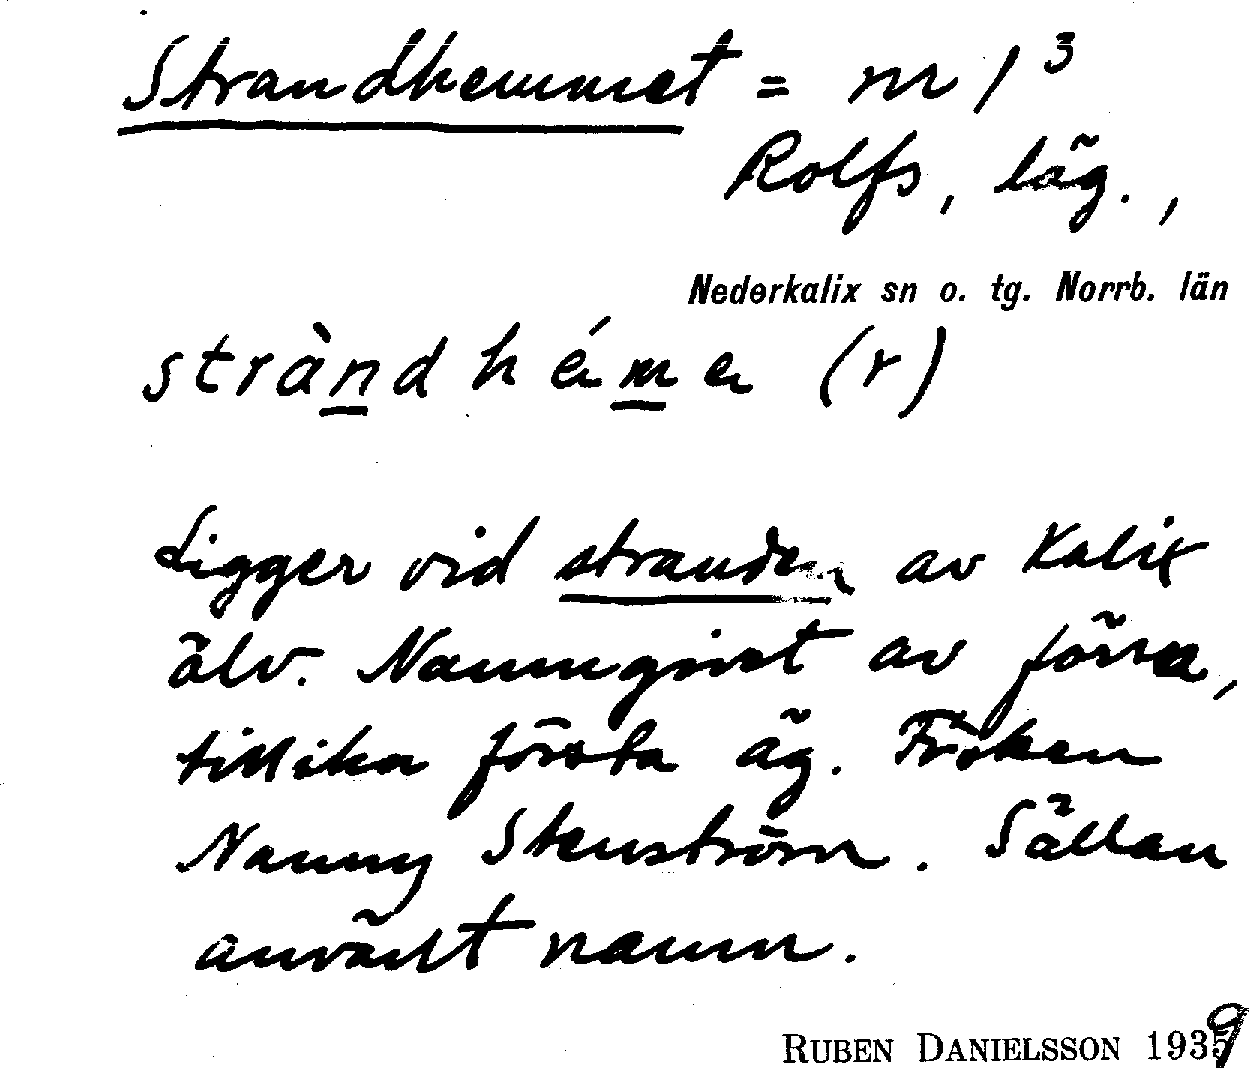 Strandhemmet = m 1³
Rolfs, läg.,
Nederkalix sn o. tg. Norrb. län
stràndhéme (r)
Ligger vid stranden av Kalix
älv. Namngivet av förra,
tillika första äg. Fröken
Nanny Stenström. Sällan
använt namn.
RUBEN DANIELSSON 1939